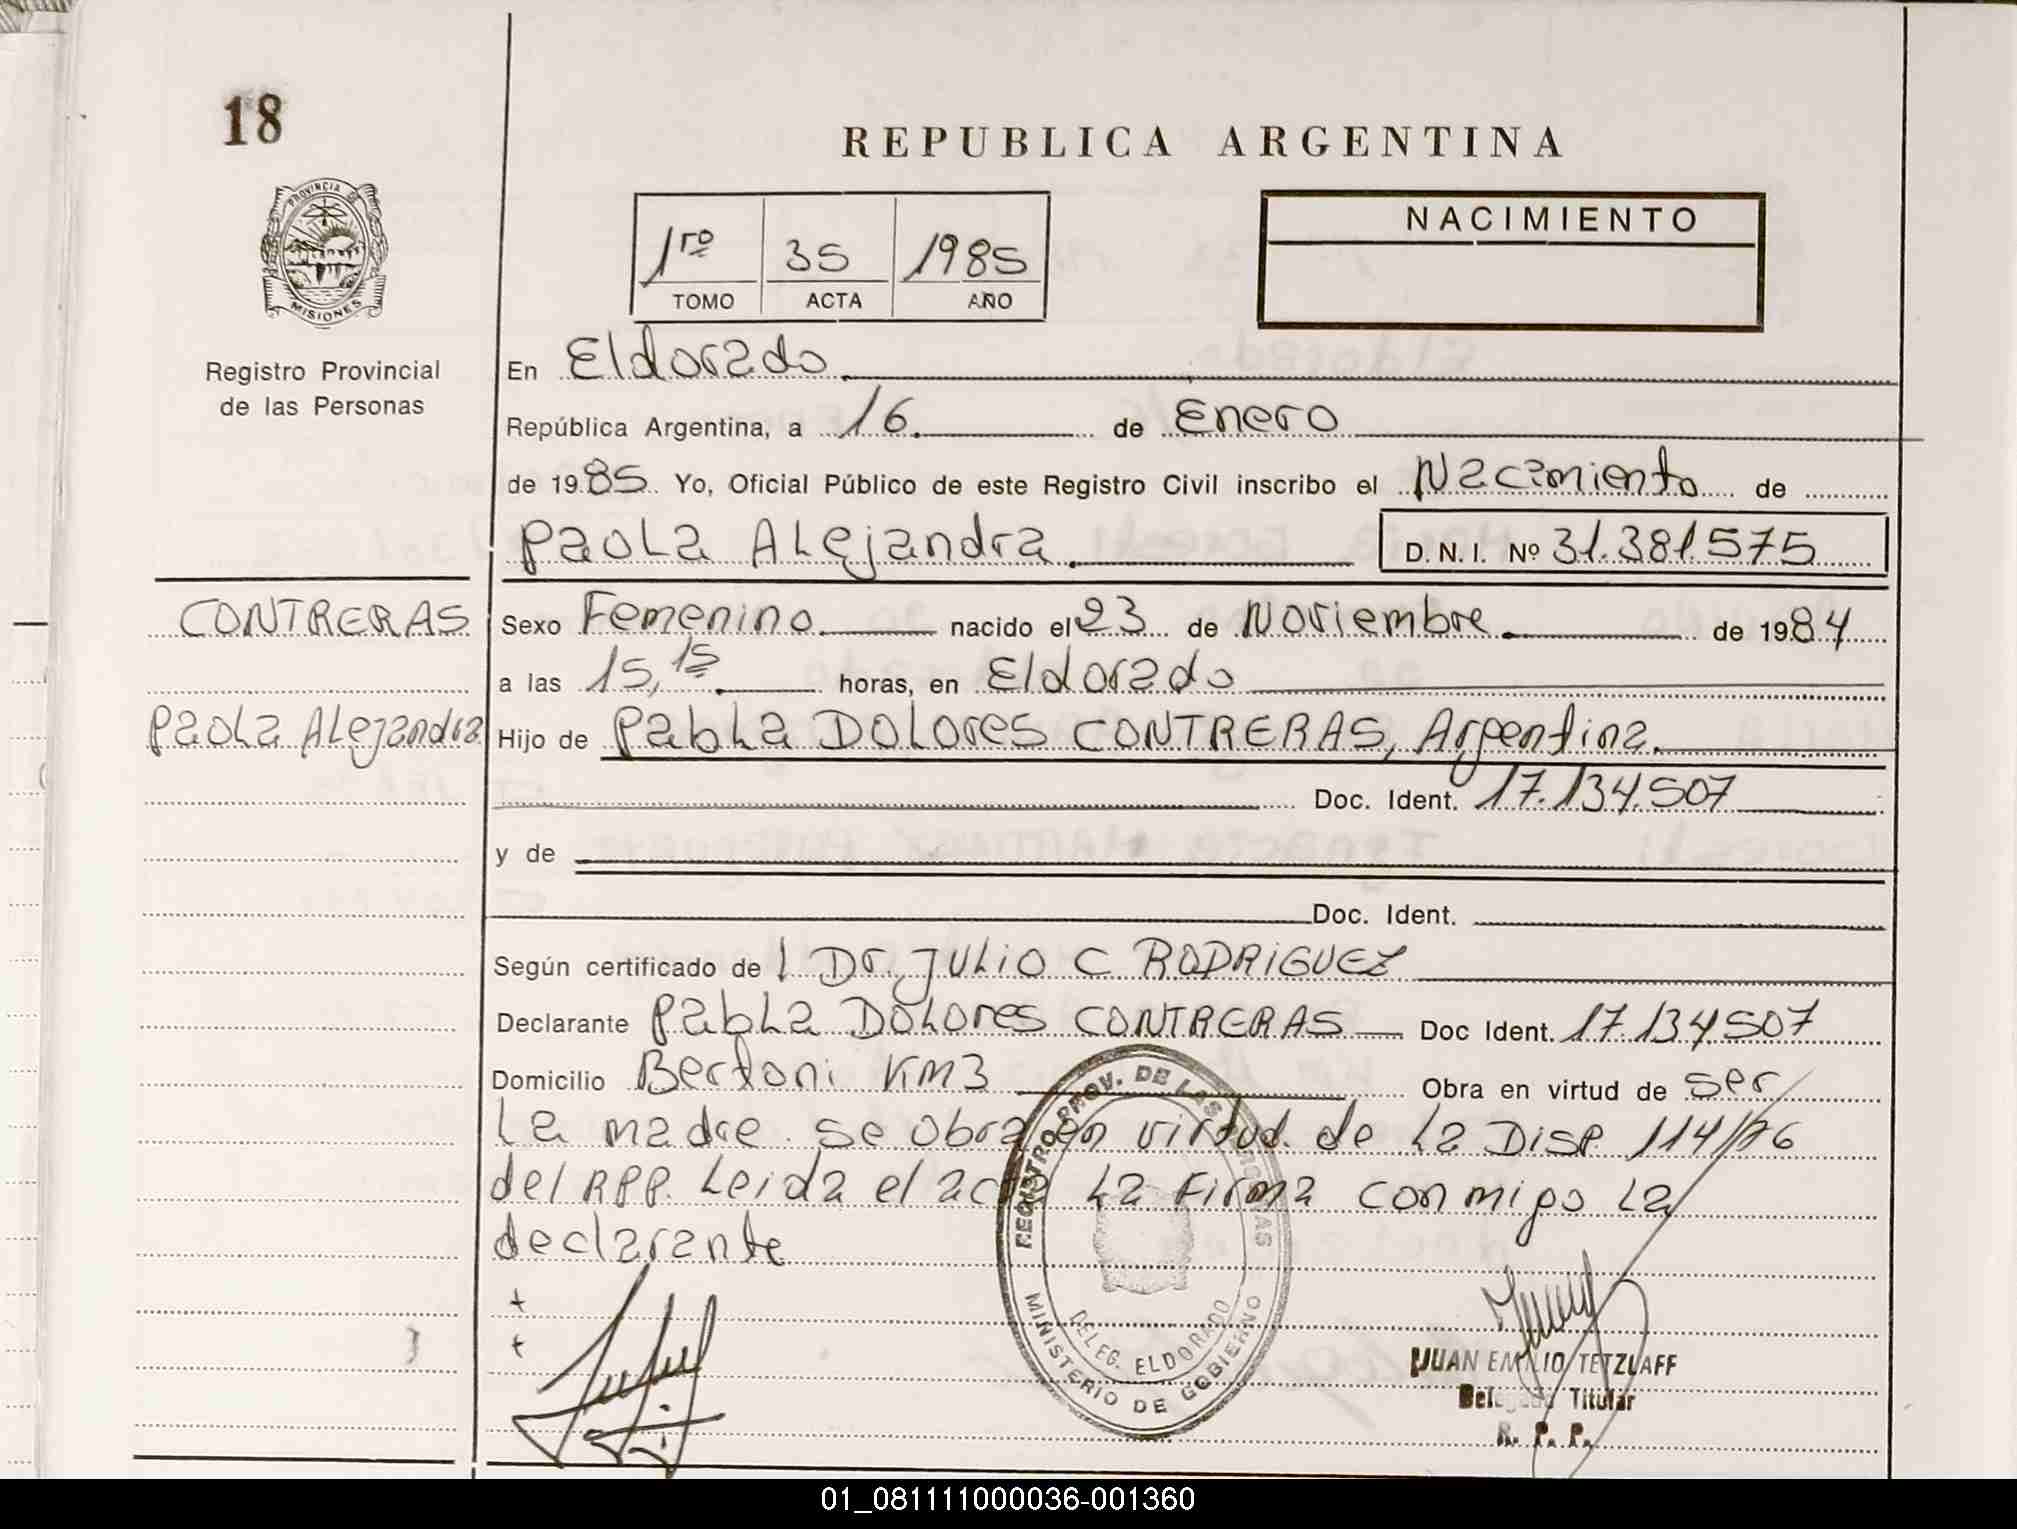 18
REPUBLICA ARGENTINA
PROVINCIA DE
MISIONES
Registro Provincial
de las Personas
1ro 35 1985
TOMO ACTA AÑO
NACIMIENTO
En Eldorado
República Argentina, a 16 de Enero
de 1985 Yo, Oficial Público de este Registro Civil inscribo el Nacimiento de
Paola Alejandra D.N.I. Nº 31.381.575
CONTRERAS
Paola Alejandra
Sexo Femenino nacido el 23 de Noviembre de 1984
a las 15,15 horas, en Eldorado
Hijo de Pabla DOLORES CONTRERAS, Argentina
Doc. Ident. 17.134.507
y de
Doc. Ident.
Según certificado de l Dr. JULIO C RODRIGUEZ
Declarante Pabla DOLORES CONTRERAS Doc Ident. 17.134.507
Domicilio Bertoni KM3 Obra en virtud de ser
La madre. se obra en virtud. de La Disp. 114/76
del RPP. Leida el acta La Firma conmigo La
declarante
REGISTRO PROV. DE LAS PERSONAS
DELEG. ELDORADO
MINISTERIO DE GOBIERNO
JUAN EMILIO TETZLAFF
Delegado Titular
R. P. P.
01_081111000036-001360